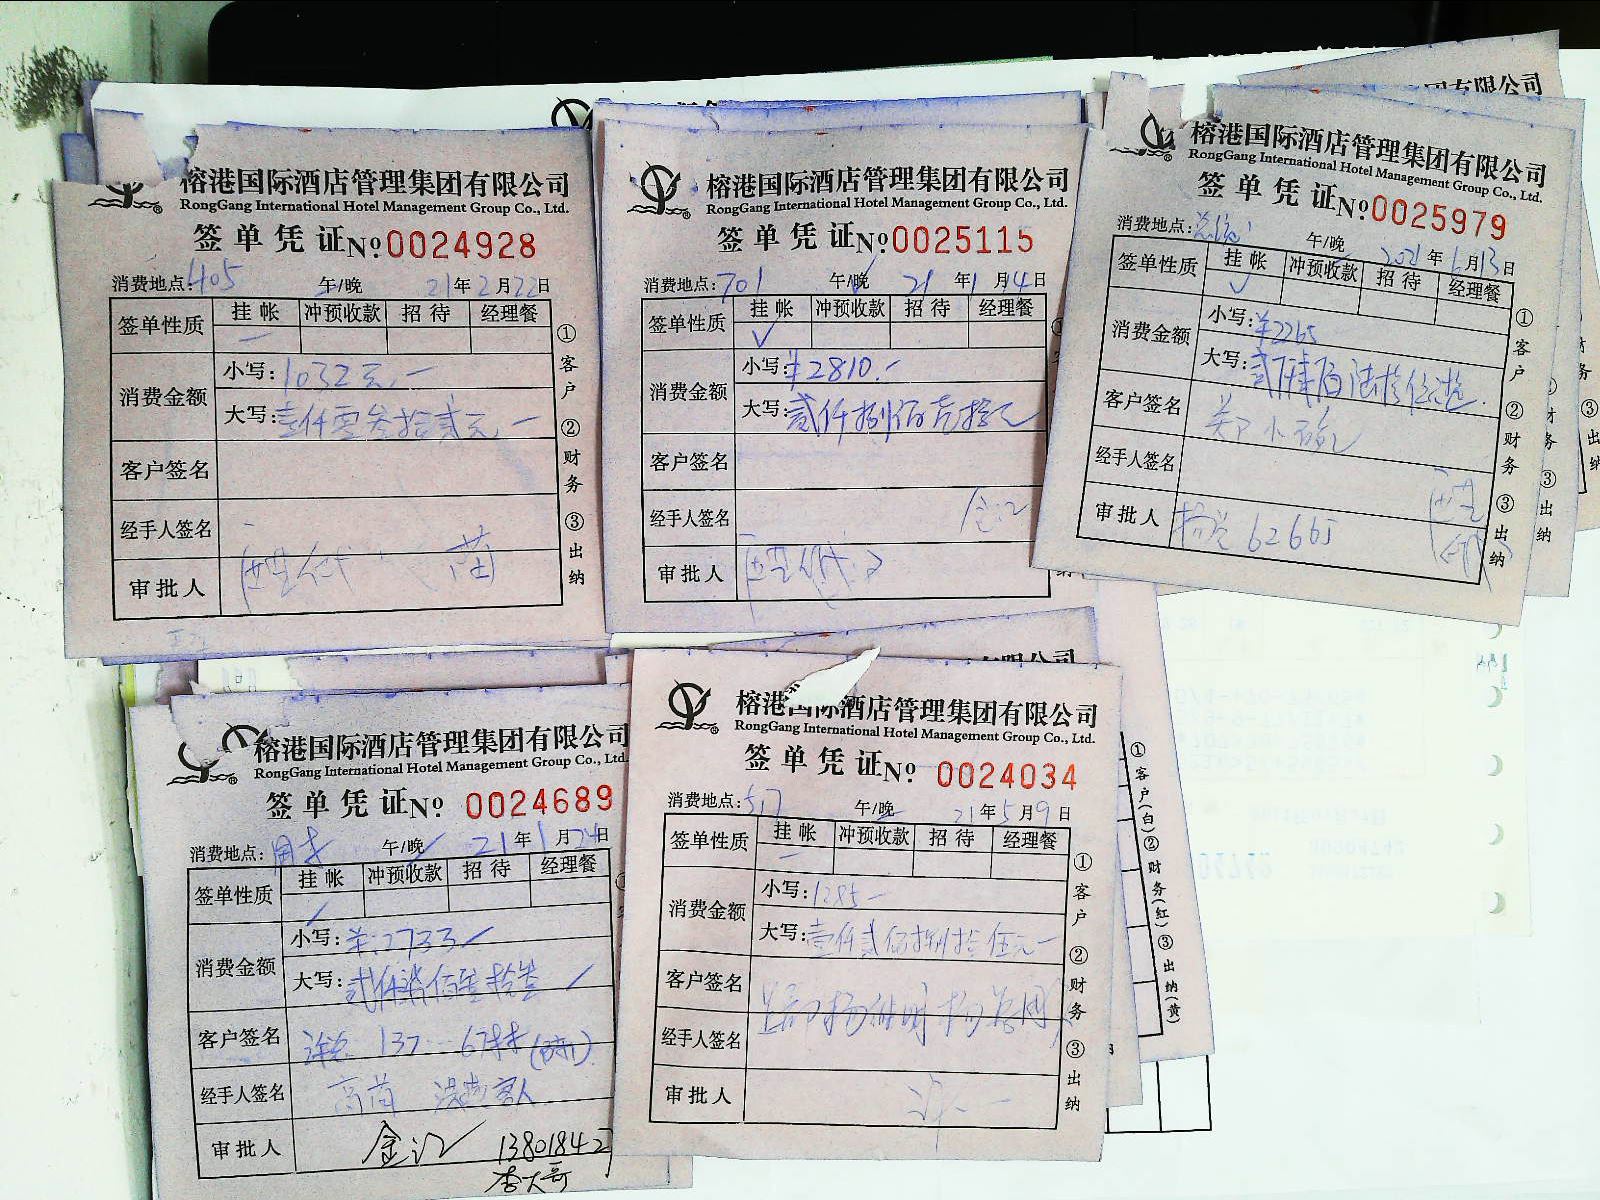 榕港国际酒店管理集团有限公司
RongGang International Hotel Management Group Co., Ltd.
签单凭证 №0024928
消费地点:405 午/晚 21年2月22日
签单性质 挂帐 冲预收款 招待 经理餐
消费金额 小写:1032元.一
大写:壹仟零叁拾贰元.一
客户签名
经手人签名
审批人
①客户 ②财务 ③出纳
榕港国际酒店管理集团有限公司
RongGang International Hotel Management Group Co., Ltd.
签单凭证 №0025115
消费地点:701 午/晚 21年1月4日
签单性质 挂帐 冲预收款 招待 经理餐
✓
消费金额 小写:¥2810.一
大写:贰仟捌佰壹拾元
客户签名
经手人签名 金江
审批人
榕港国际酒店管理集团有限公司
RongGang International Hotel Management Group Co., Ltd.
签单凭证 №0025979
消费地点: 午/晚 2021年6月13日
签单性质 挂帐 冲预收款 招待 经理餐
✓
消费金额 小写:¥2265
大写:
客户签名
经手人签名
审批人 62665
①客户 ②财务 ③出纳
榕港国际酒店管理集团有限公司
RongGang International Hotel Management Group Co., Ltd.
签单凭证 №0024689
消费地点: 午/晚 21年1月24日
签单性质 挂帐 冲预收款 招待 经理餐
消费金额 小写:¥:2733
大写:贰仟柒佰叁拾叁
客户签名 137
经手人签名
审批人 金江 1380184
李大哥
榕港国际酒店管理集团有限公司
RongGang International Hotel Management Group Co., Ltd.
签单凭证 №0024034
消费地点:517 午/晚 21年5月9日
签单性质 挂帐 冲预收款 招待 经理餐
消费金额 小写:1285一
大写:壹仟贰佰捌拾伍元一
客户签名
经手人签名
审批人
①客户 ②财务 ③出纳
①客户(白)②财务(红)③出纳(黄)